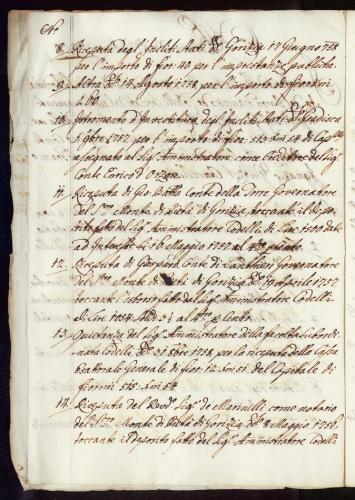 8. Ricevuta degl'Incliti Stati di Gorizia 17 Giugno 758
per l'importo di fior: 40 per l'imprestito publico
9. Altra 14 Agosto 1758 per l'importo di fiorini
10. Intromento d'Investitura degl'Incliti Stati di Gradisca
1757 per l'importo di fior: 513
assegnato al Sig. Aministratore come Creditore del Sig.
Conte Enrico d'Orzon
11. Ricevuta di Gio: Batta Conte della Torre Governatore
del Monte di Pietà di Gorizia, toccante il depo-
sito fatto del Sig. Aministratore Codelli di Lire 1500 date
ad Interesse li 16 Maggio 1752 al 4 per cento
12. Ricevuta di Gasparo Conte di Lanthieri Governatore
del S. Monte di Pietà di Gorizia 19 Aprile 1757
toccante l'esborso fatto dal Sig. Aministratore Codelli
di Lire 1054 al 4 per cento.
13. Quietanza del Sig. Aministratore della facoltà
Codelli 1758 per la ricevuta della Cassa
Cattorale Generale di fior: 12 del Capitale di
fiorini 515
14. Ricevuta del Revd. Sig. de Marinelli come notario
del S. Monte di Pietà di Gorizia 8 Maggio 1756
toccante il deposito fatto del Sig. Aministratore Codelli